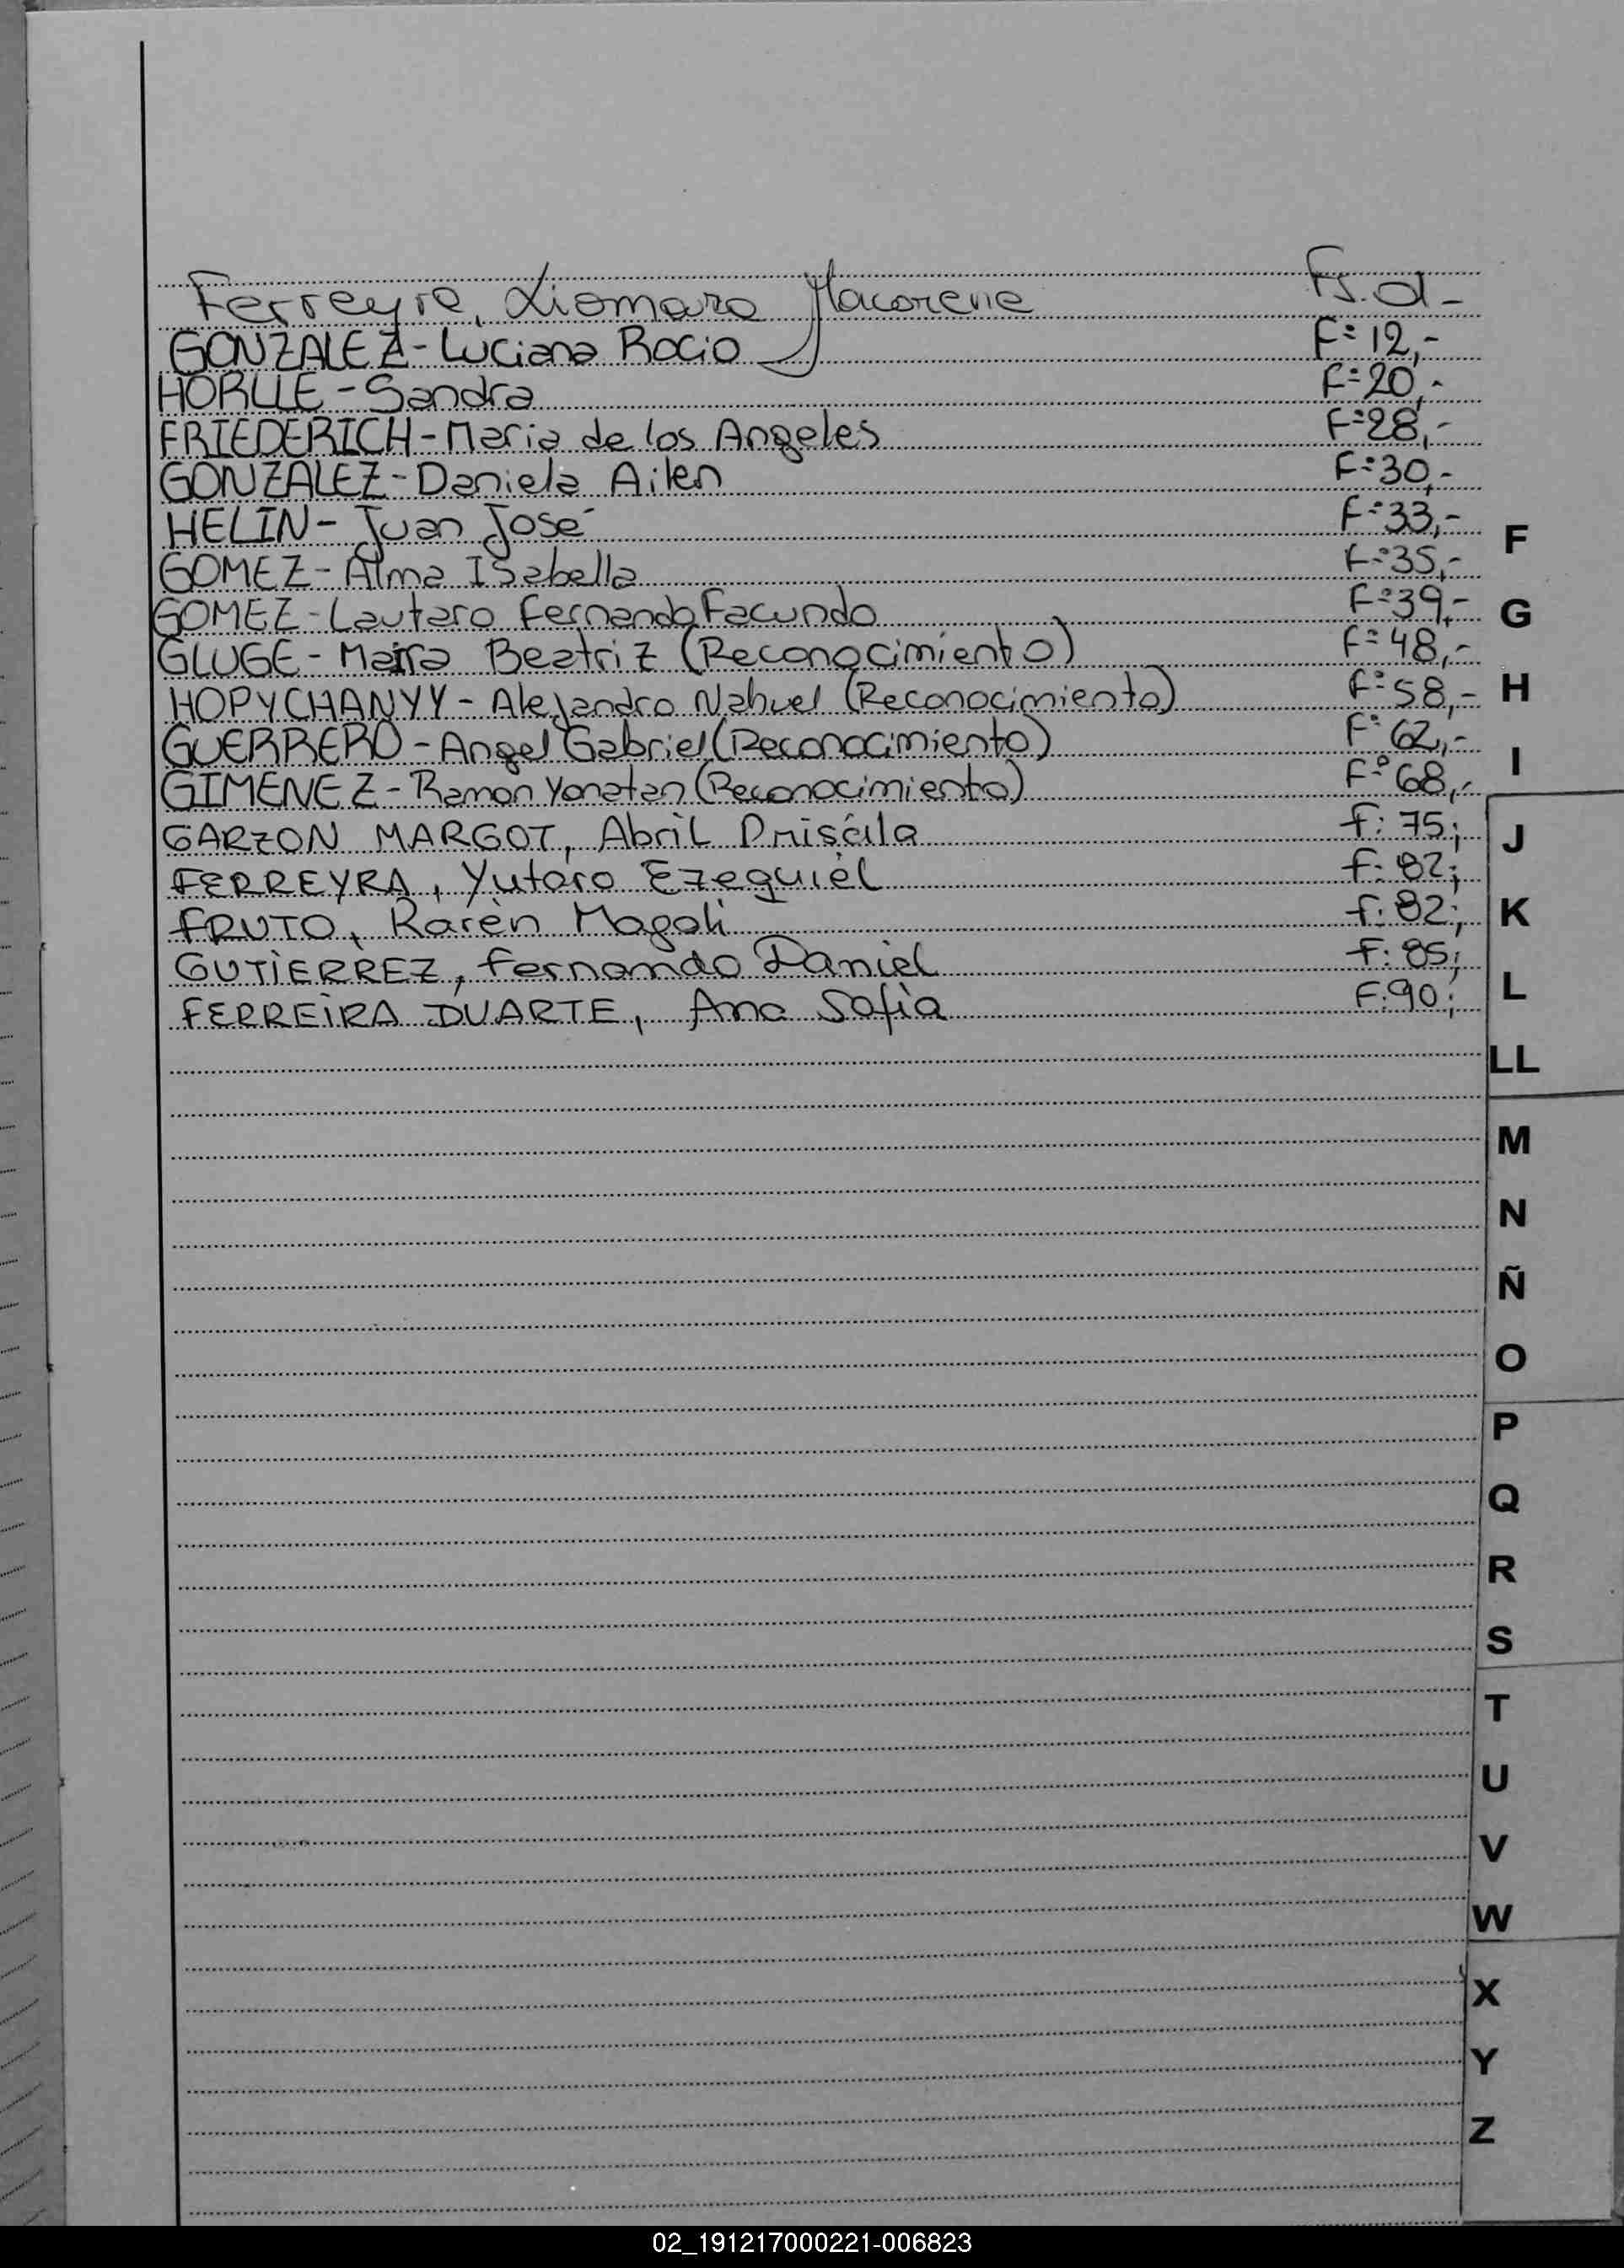 Ferreyra, Xiomara Macarena Fs. d-
GONZALEZ - Luciana Rocio F:12,-
HORLLE - Sandra F:20,-
FRIEDERICH - Maria de los Angeles F:28,-
GONZALEZ - Daniela Ailen F:30,-
HELIN - Juan José F:33,-
GOMEZ - Alma Isabella F:35,-
GOMEZ - Lautaro Fernando Facundo F:39,-
GLUGE - Maira Beatriz (Reconocimiento) F:48,-
HOPYCHANYY - Alejandro Nahuel (Reconocimiento) F:58,-
GUERRERO - Angel Gabriel (Reconocimiento) F:62,-
GIMENEZ - Ramon Yonatan (Reconocimiento) Fº68,-
GARZON MARGOT, Abril Priscila f: 75;
FERREYRA, Yutaro Ezequiel f: 82;
FRUTO, Karen Magali f: 82;
GUTIERREZ, Fernando Daniel f: 85;
FERREIRA DUARTE, Ana Sofia F:90;
F
G
H
I
J
K
L
LL
M
N
Ñ
O
P
Q
R
S
T
U
V
W
X
Y
Z
02_191217000221-006823